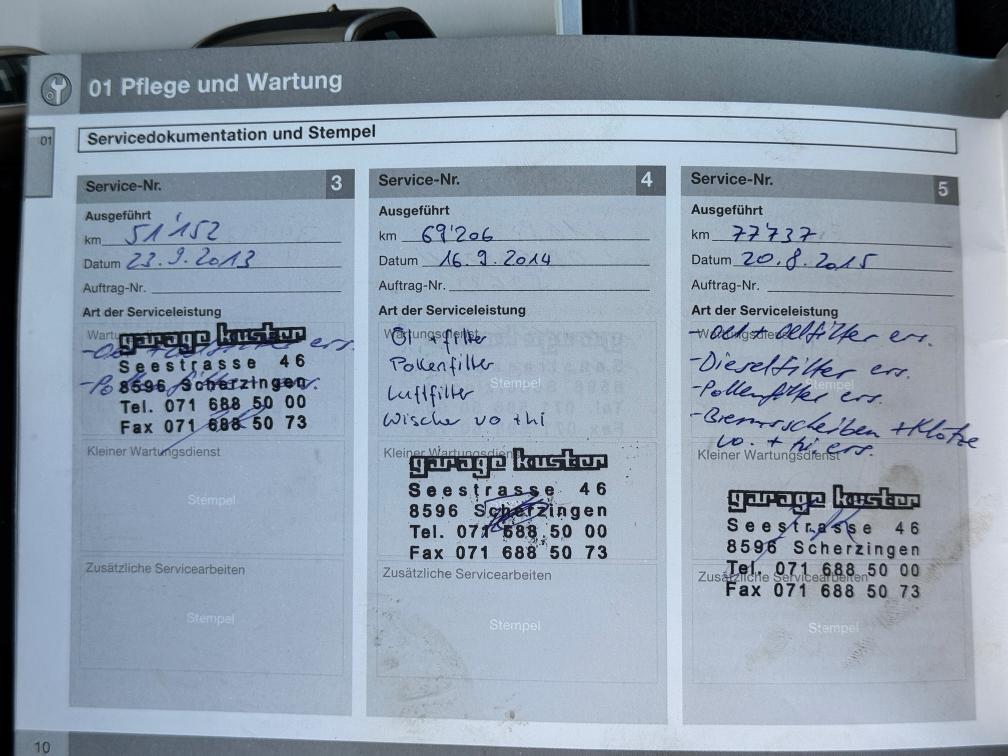 01 Pflege und Wartung
01
Servicedokumentation und Stempel
Service-Nr. 3
Ausgeführt
km 51'152
Datum 23.9.2013
Auftrag-Nr.
Art der Serviceleistung
Wartungsdienst
garage kuster
Seestrasse 46
8596 Scherzingen
Tel. 071 688 50 00
Fax 071 688 50 73
Kleiner Wartungsdienst
Stempel
Zusätzliche Servicearbeiten
Stempel
Service-Nr. 4
Ausgeführt
km 69'206
Datum 16.9.2014
Auftrag-Nr.
Art der Serviceleistung
Wartungsdienst
Öl + filter
Pollenfilter
Stempel
Luftfilter
Wischer vo + hi
Kleiner Wartungsdienst
garage kuster
Seestrasse 46
8596 Scherzingen
Tel. 071 688 50 00
Fax 071 688 50 73
Zusätzliche Servicearbeiten
Stempel
Service-Nr. 5
Ausgeführt
km 77'737
Datum 20.8.2015
Auftrag-Nr.
Art der Serviceleistung
Wartungsdienst
- Oel + Oelfilter ers.
- Dieselfilter ers.
Stempel
- Pollenfilter ers.
- Bremsscheiben + Klötze
vo. + hi. ers.
Kleiner Wartungsdienst
garage kuster
Seestrasse 46
8596 Scherzingen
Tel. 071 688 50 00
Zusätzliche Servicearbeiten
Fax 071 688 50 73
Stempel
10